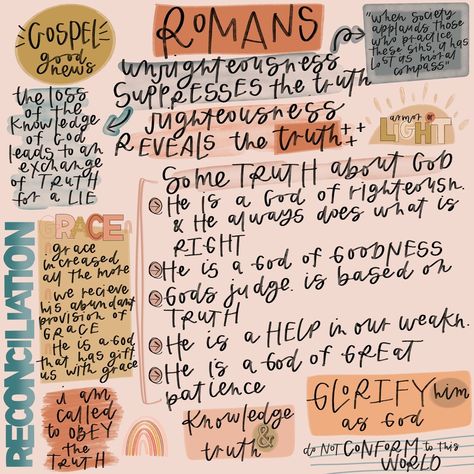 GOSPEL
good
news
ROMANS
"when society
applauds those
who practice
these sins, it has
lost its moral
compass"
unrighteousness
SUPPRESSES the truth
righteousness
REVEALS the truth++
the loss
of the
knowledge
of God
leads to an
exchange
of TRUTH
for a LIE
armor OF
LIGHT
Some TRUTH about GOD
He is a God of righteousn.
& He always does what is
RIGHT
He is a God of GOODNESS
Gods judge. is based on
TRUTH
He is a HELP in our weakn.
He is a God of GREAT
patience
RECONCILIATION
GRACE
grace
increased
all the more
we recieve
his abundant
provision of
GRACE
He is a God
that has gift
us with grace
i am
called
to OBEY
the
TRUTH
Knowledge
&
truth
GLORIFY him
as God
do NOT CONFORM to this
WORLD